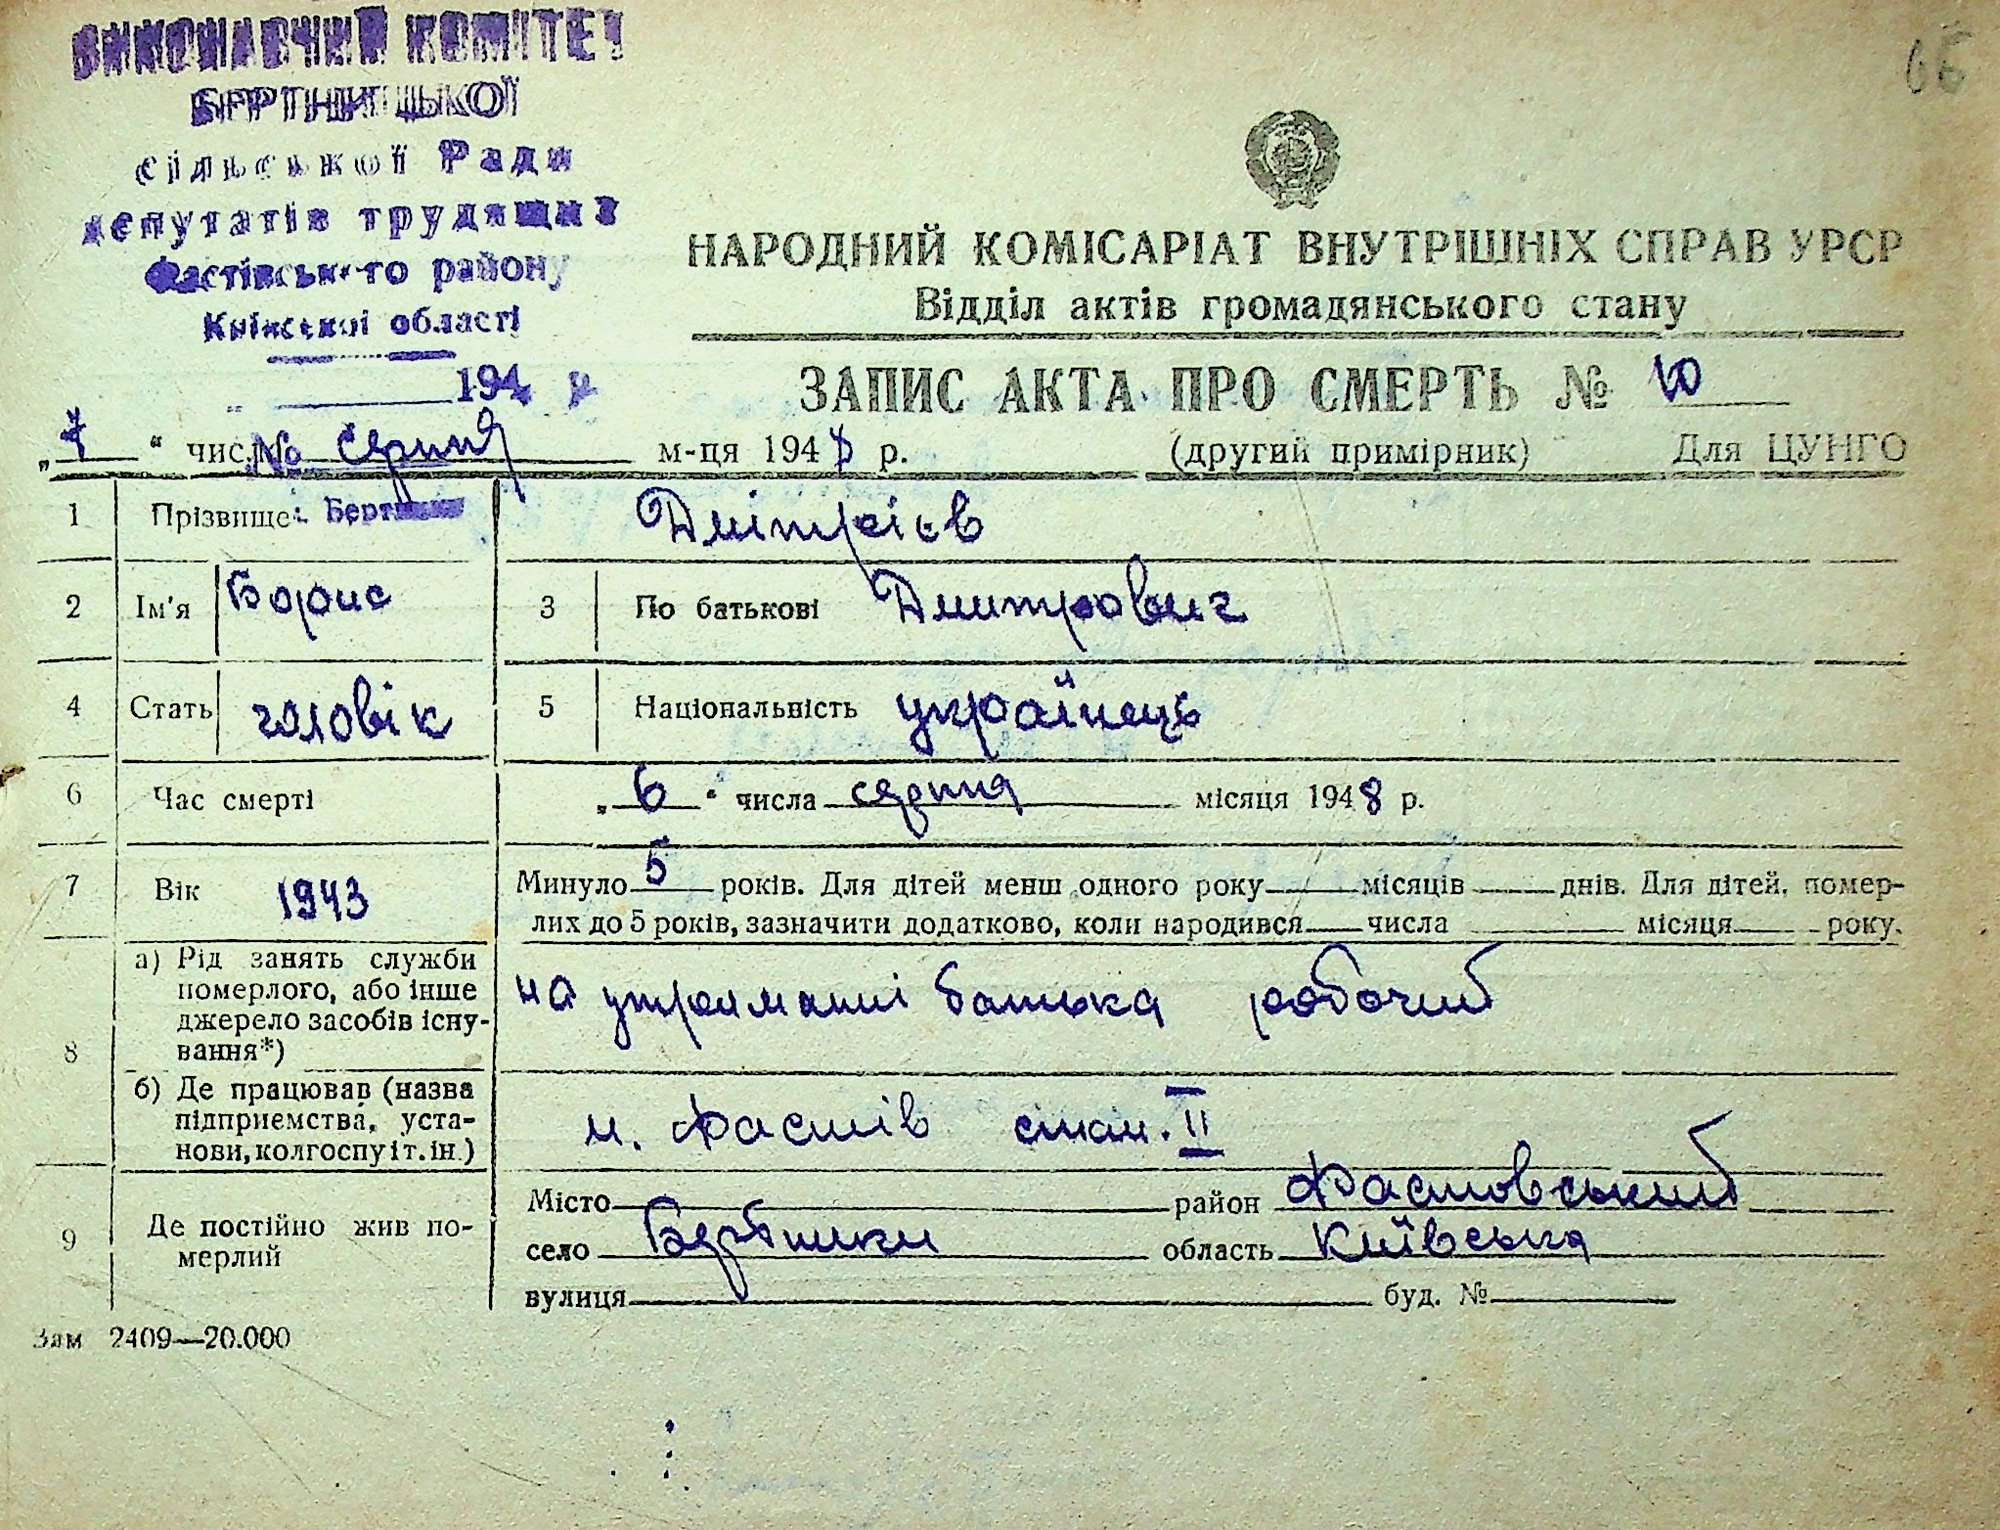 66
ВИКОНАВЧИЙ КОМІТЕТ
БЕРТНИЦЬКОЇ
сільської Ради
депутатів трудящих
Фастівського району
Київської області
194 р
№
Берт
НАРОДНИЙ КОМІСАРІАТ ВНУТРІШНІХ СПРАВ УРСР
Відділ актів громадянського стану
ЗАПИС АКТА ПРО СМЕРТЬ № 10
„7“ числа серпня м-ця 1948 р. (другий примірник) Для ЦУНГО
1 Прізвище: Дмітрієв
2 Ім'я Борис 3 По батькові Дмитрович
4 Стать чоловік 5 Національність українець
6 Час смерті „6“ числа серпня місяця 1948 р.
7 Вік 1943 Минуло 5 років. Для дітей менш одного року місяців днів. Для дітей, помер-
лих до 5 років, зазначити додатково, коли народився числа місяця року.
8 а) Рід занять служби
померлого, або інше
джерело засобів існу-
вання*)
на утриманні батька робочий
б) Де працював (назва
підприємства, уста-
нови, колгоспу і т. ін.)
м. Фастів стан. II
9 Де постійно жив по-
мерлий
Місто район Фастовський
село Бертники область Київська
вулиця буд. №
Зам 2409—20.000